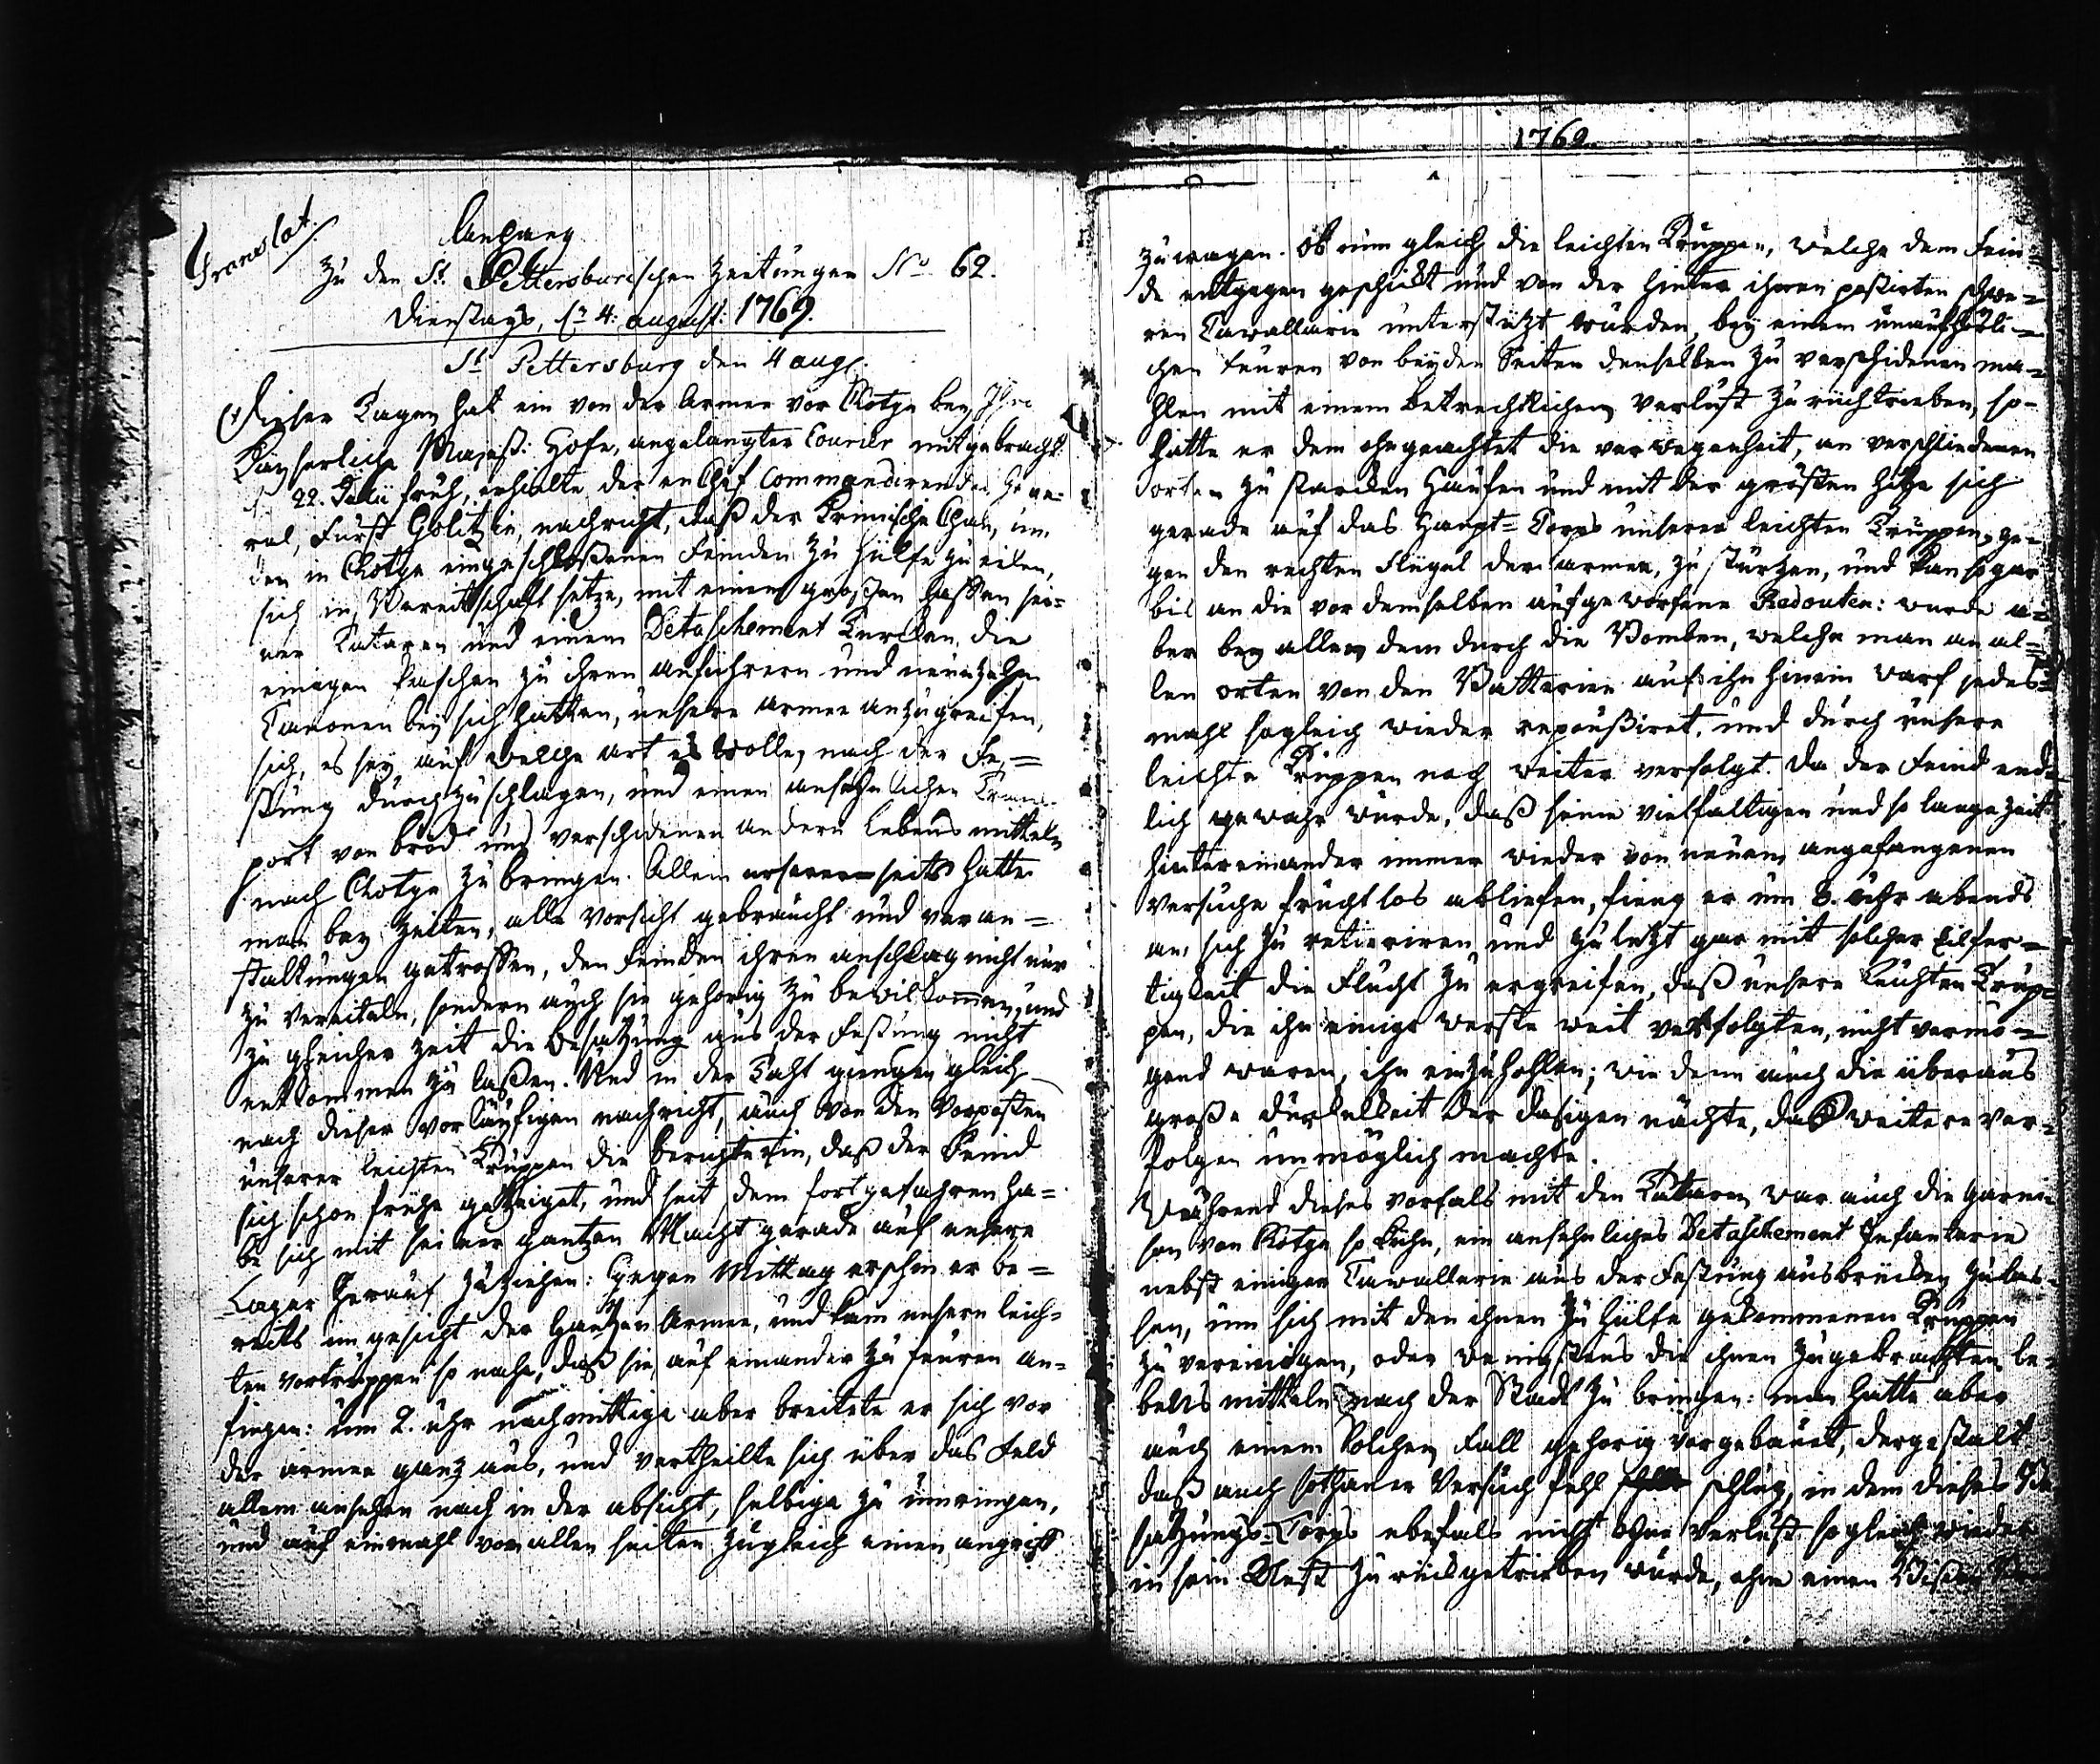 Translat.
Anhang
Zu den St. Pettersburischen Zeitungen No. 62.
Dienstags, dn 4: august: 1769.
St Pettersburg den 4 augs.
Dieser Tagen hat ein von der Armee vor Chotzn bey Ihro
Kayserliche Majest: Hofe, angelangter Courier mitgebracht
dn 22. Julii früh, erhielte der en Chef Commandirender Gene-
ral, Fürst Golitzin, nachricht, daß der Krimische Chan, um
den in Chotzn eingeschloßenen Feinden zu Hülfe zu eilen,
sich in Bereitschaft setze, mit einem großen hauffen sei-
ner Tataren und einem Detaschement Turcken, die
einigen Paschen zu ihren anführern und neunzehn
Canonen bey sich hatten, unsere armee anzugreifen,
sich, es sey auf welche art es wolle, nach der Fe=
stung durchzuschlagen, und einen ansehnlichen Trans-
port von brod und verschidenen andern lebens mitteln
nach Chotzn zu bringen. Allein unserer seits hatte
man bey Zeiten, alle vorsicht gebraucht und veran=
staltungen getroffen, den Feinden ihren anschlag nicht nur
zu vereiteln, sondern auch sie gehörig zu bewilkommen, und
zu gleicher Zeit die besatzung aus der Festung nicht
entkommen zu laßen. Und in der Taht giengen gleich
nach dieser vorläufigen nachricht, auch von den Vorposten
unserer leichten Truppen die berichte ein, daß der Feind
sich schon frühe gezeiget, und seit dem fortgefahren ha=
be sich mit seiner gantzen Macht gerade auf unsere
Lager herauf zu ziehen: Gegen Mittag erschin er be=
reits im gesicht der gantzen Armee, und kam unsern leich=
ten vortruppen so nahe, daß sie auf einander zu feuren an=
fingen: um 2. uhr nachmittige aber breitete er sich vor
der armee ganz aus, und vertheilte sich über das Feld
allem ansehen nach in der absicht, selbige zu umringen,
und auf einmahl von allen seiten zugleich einen angriff
1769.
zu wagen. Ob nun gleich die leichten Truppen, welche dem Fein=
de entgegen geschickt und von der hinter ihnen postirten schwe=
ren Cavallarie unterstützt wurden, bey einem unaufhörli=
chen feuren von beyden Seiten denselben zu verschidenen ma=
hlen mit einem betrechtlichen verlust zurücktrieben, so=
hatte er dem ohngeachtet die verwegenheit, an verschiedenen
orten zu starcken Haufen und mit der größten hitze sich
gerade auf das Haupt=Corps unserer leichten Truppen, ge=
gen den rechten Flügel der armee, zu stürzen, und kam sogar
bis an die vor demselben aufgeworfene Redouten: wurde a=
ber bey allem dem durch die Bomben, welche man an al=
len orten von den Batterien auf ihn hinein warf jedes=
mahl sogleich wieder repoußiret, und durch unsere
leichte Truppen noch weiter verfolgt. Da der Feind end=
lich gewahr wurde, daß seine vielfältigen und so lange Zeit
hintereinander immer wieder von neuem angefangenen
versuche fruchtlos abliefen, fieng er um 8. uhr abends
an, sich zu retieriren und zuletzt gar mit solcher Eilfer=
tigkeit die Flucht zu ergreifen, daß unsere Leichten Trup=
pen, die ihn einige werste weit verfolgten, nicht vermö=
gend waren, ihn einzuhohlen; wie denn auch die überaus
große dunkelkeit der dasigen nächte, das weitere ver=
folgen unmöglich machte.
Während dieses vorfals mit den Tataren war auch die Garni-
son von Kotzn so kühn, ein ansehnliches Detaschement Infanterie
nebst einiger Cawallerie aus der Festung ausbrücken zu las=
sen, um sich mit den ihnen zu hülfe gekommenen Truppen
zu vereinigen, oder wenigstens die ihnen zugebrachten le=
bens mitteln nach der Stadt zu bringen: man hatte aber
auch einem solchen Fall gehörig vorgebauet, dergestalt
daß auch sothaner Versuch fehl schlug, in dem dieses Be
satzungs=Corps ebefals nicht ohne Verlust sogleich wieder
in sein Nest zurückgetrieben wurde, ohne einen Bißen